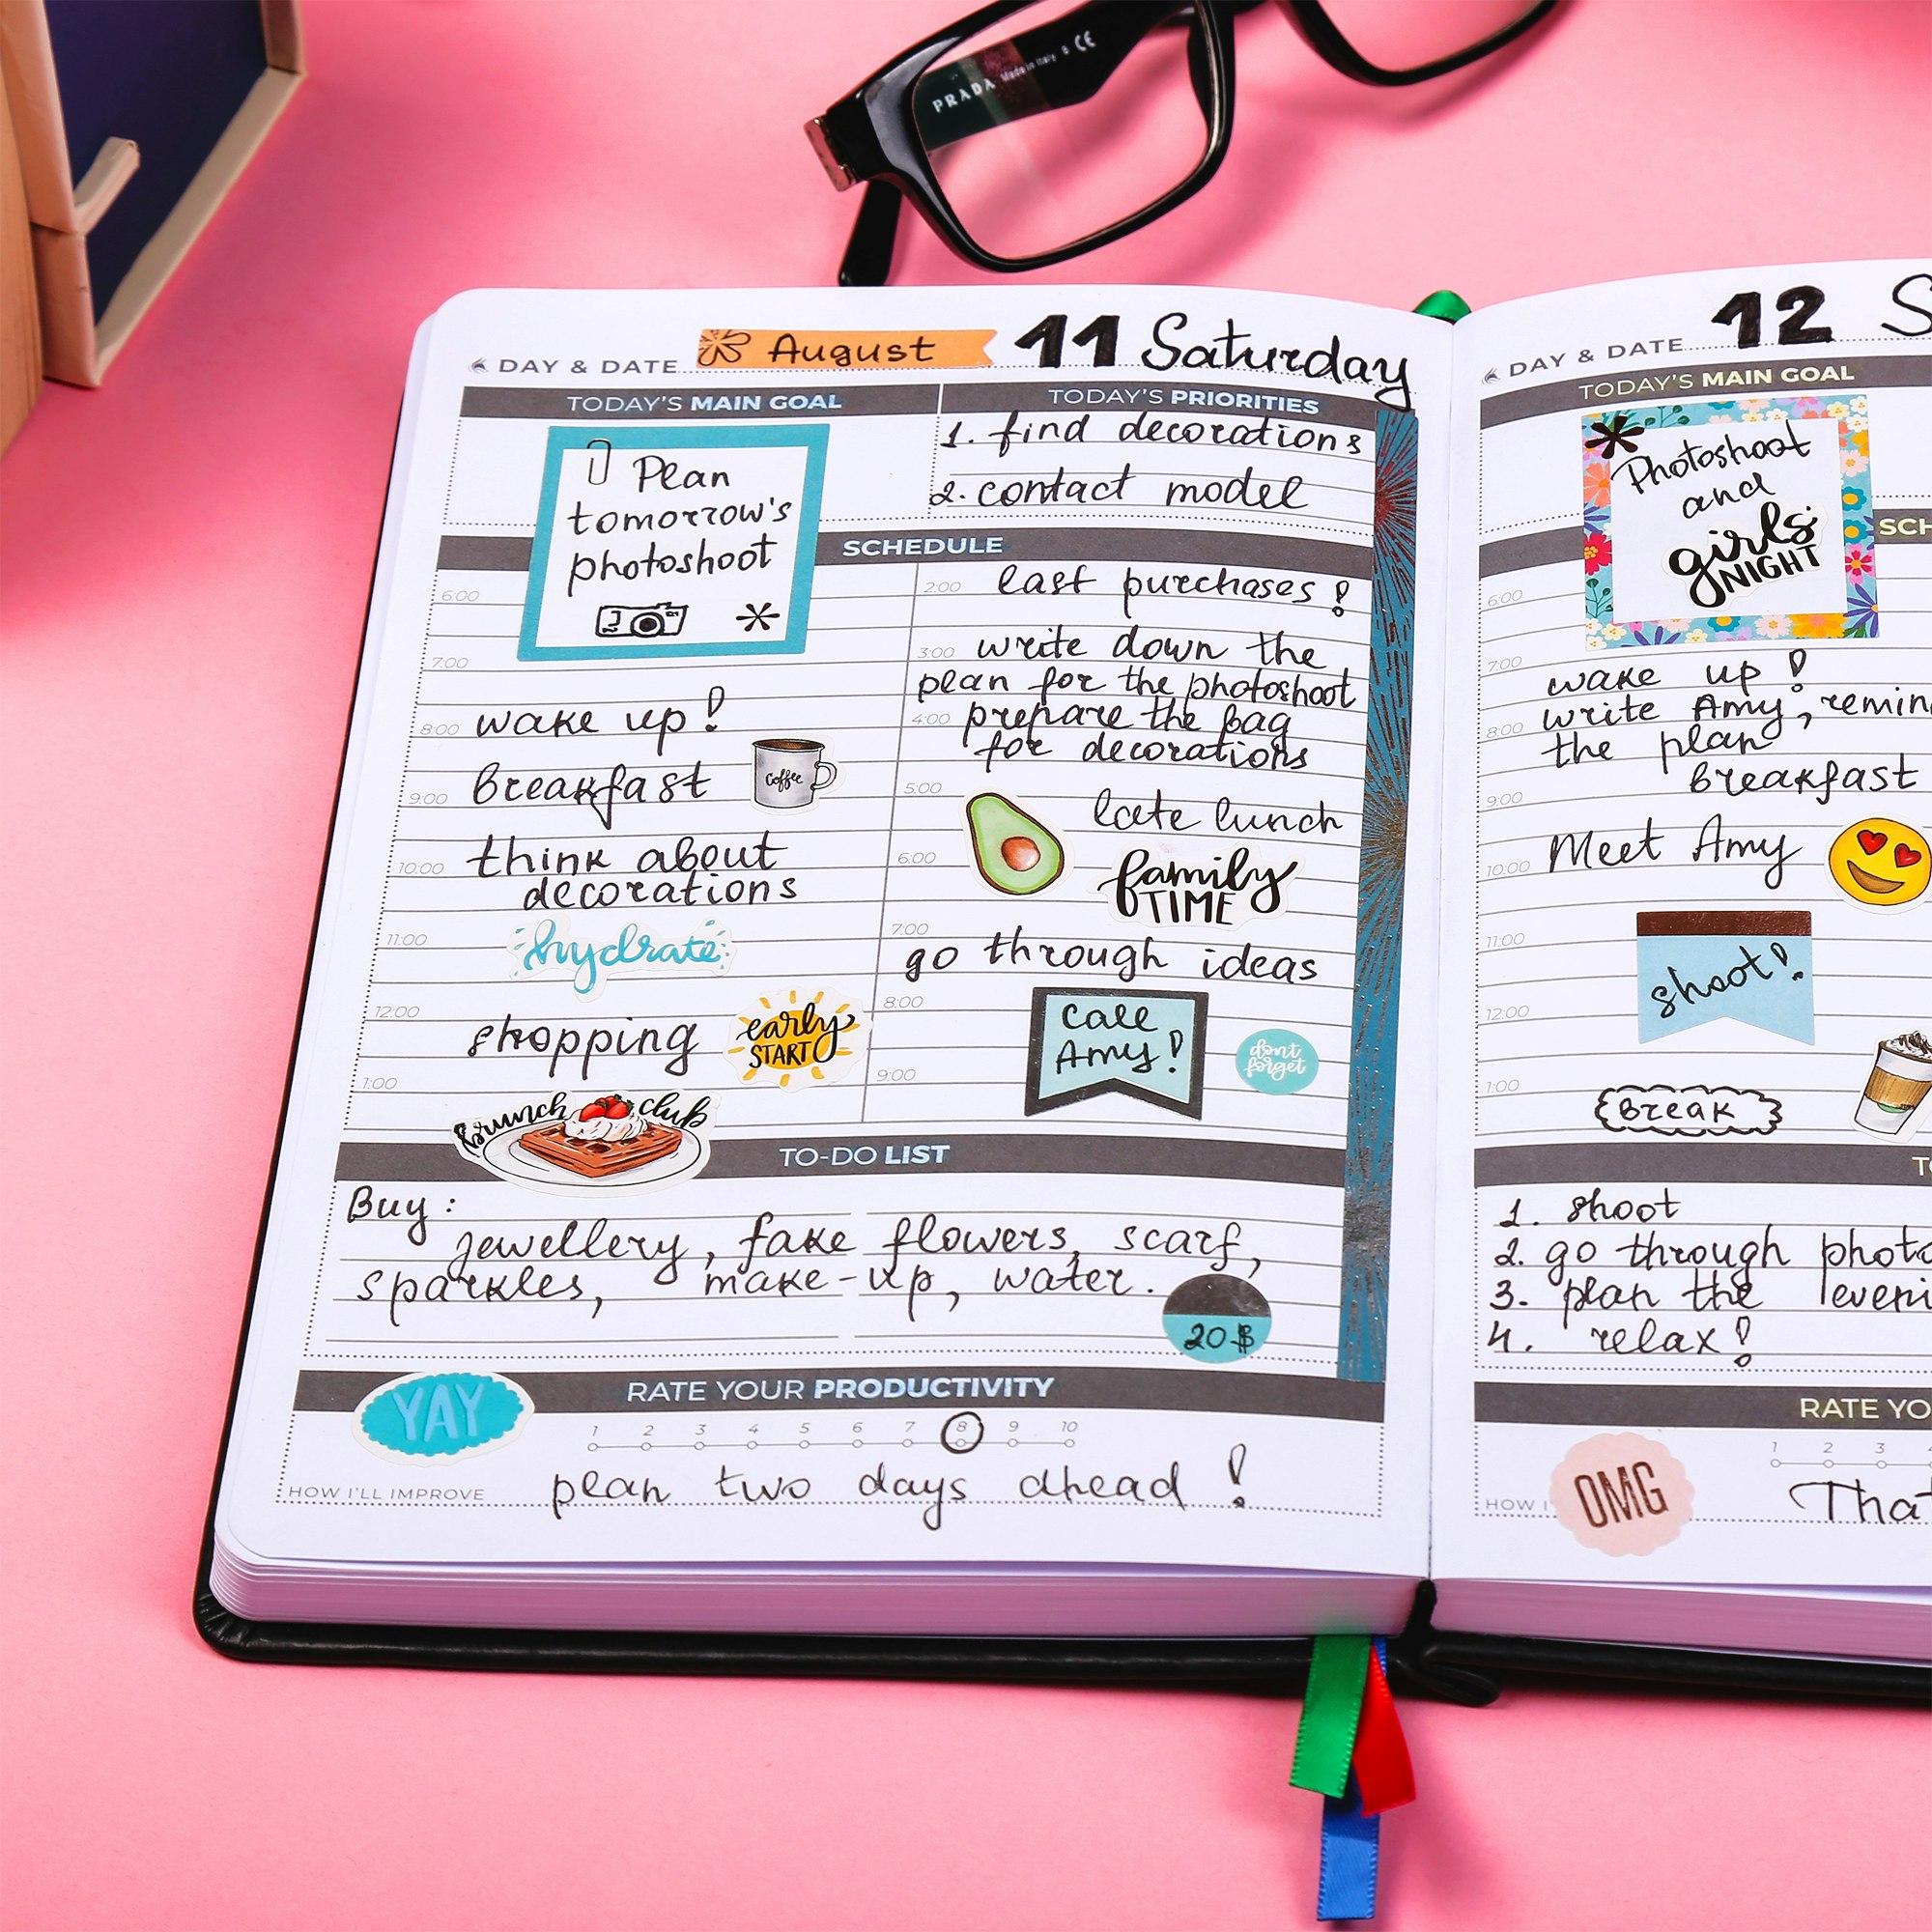 PRADA Made in Italy CE
DAY & DATE August 11 Saturday
TODAY'S MAIN GOAL
Plan
tomorrow's
photoshoot
TODAY'S PRIORITIES
1. find decorations
2. contact model
SCHEDULE
6:00
7:00
8:00 wake up!
Breakfast
Coffee
9:00
10:00 think about
decorations
11:00
hydrate
12:00
shopping
early
START
1:00
Brunch club
2:00 last purchases!
3:00 write down the
plan for the photoshoot
4:00 prepare the bag
for decorations
5:00
late lunch
6:00
family
TIME
7:00
go through ideas
8:00
Call
Amy!
don't
forget
9:00
TO-DO LIST
Buy:
jewellery, fake flowers, scarf,
sparkles, make-up, water.
20$
RATE YOUR PRODUCTIVITY
YAY
1 2 3 4 5 6 7 8 9 10
HOW I'LL IMPROVE plan two days ahead!
DAY & DATE 12 S
TODAY'S MAIN GOAL
Photoshoot
and
girls
NIGHT
SCH
6:00
7:00
wake up!
8:00 write Amy, remin
the plan
breakfast
9:00
10:00 Meet Amy
11:00
shoot!
12:00
1:00
Break
1. shoot
2. go through photo
3. plan the eveni
4. relax!
RATE YO
1 2 3
HOW I
OMG
Tha